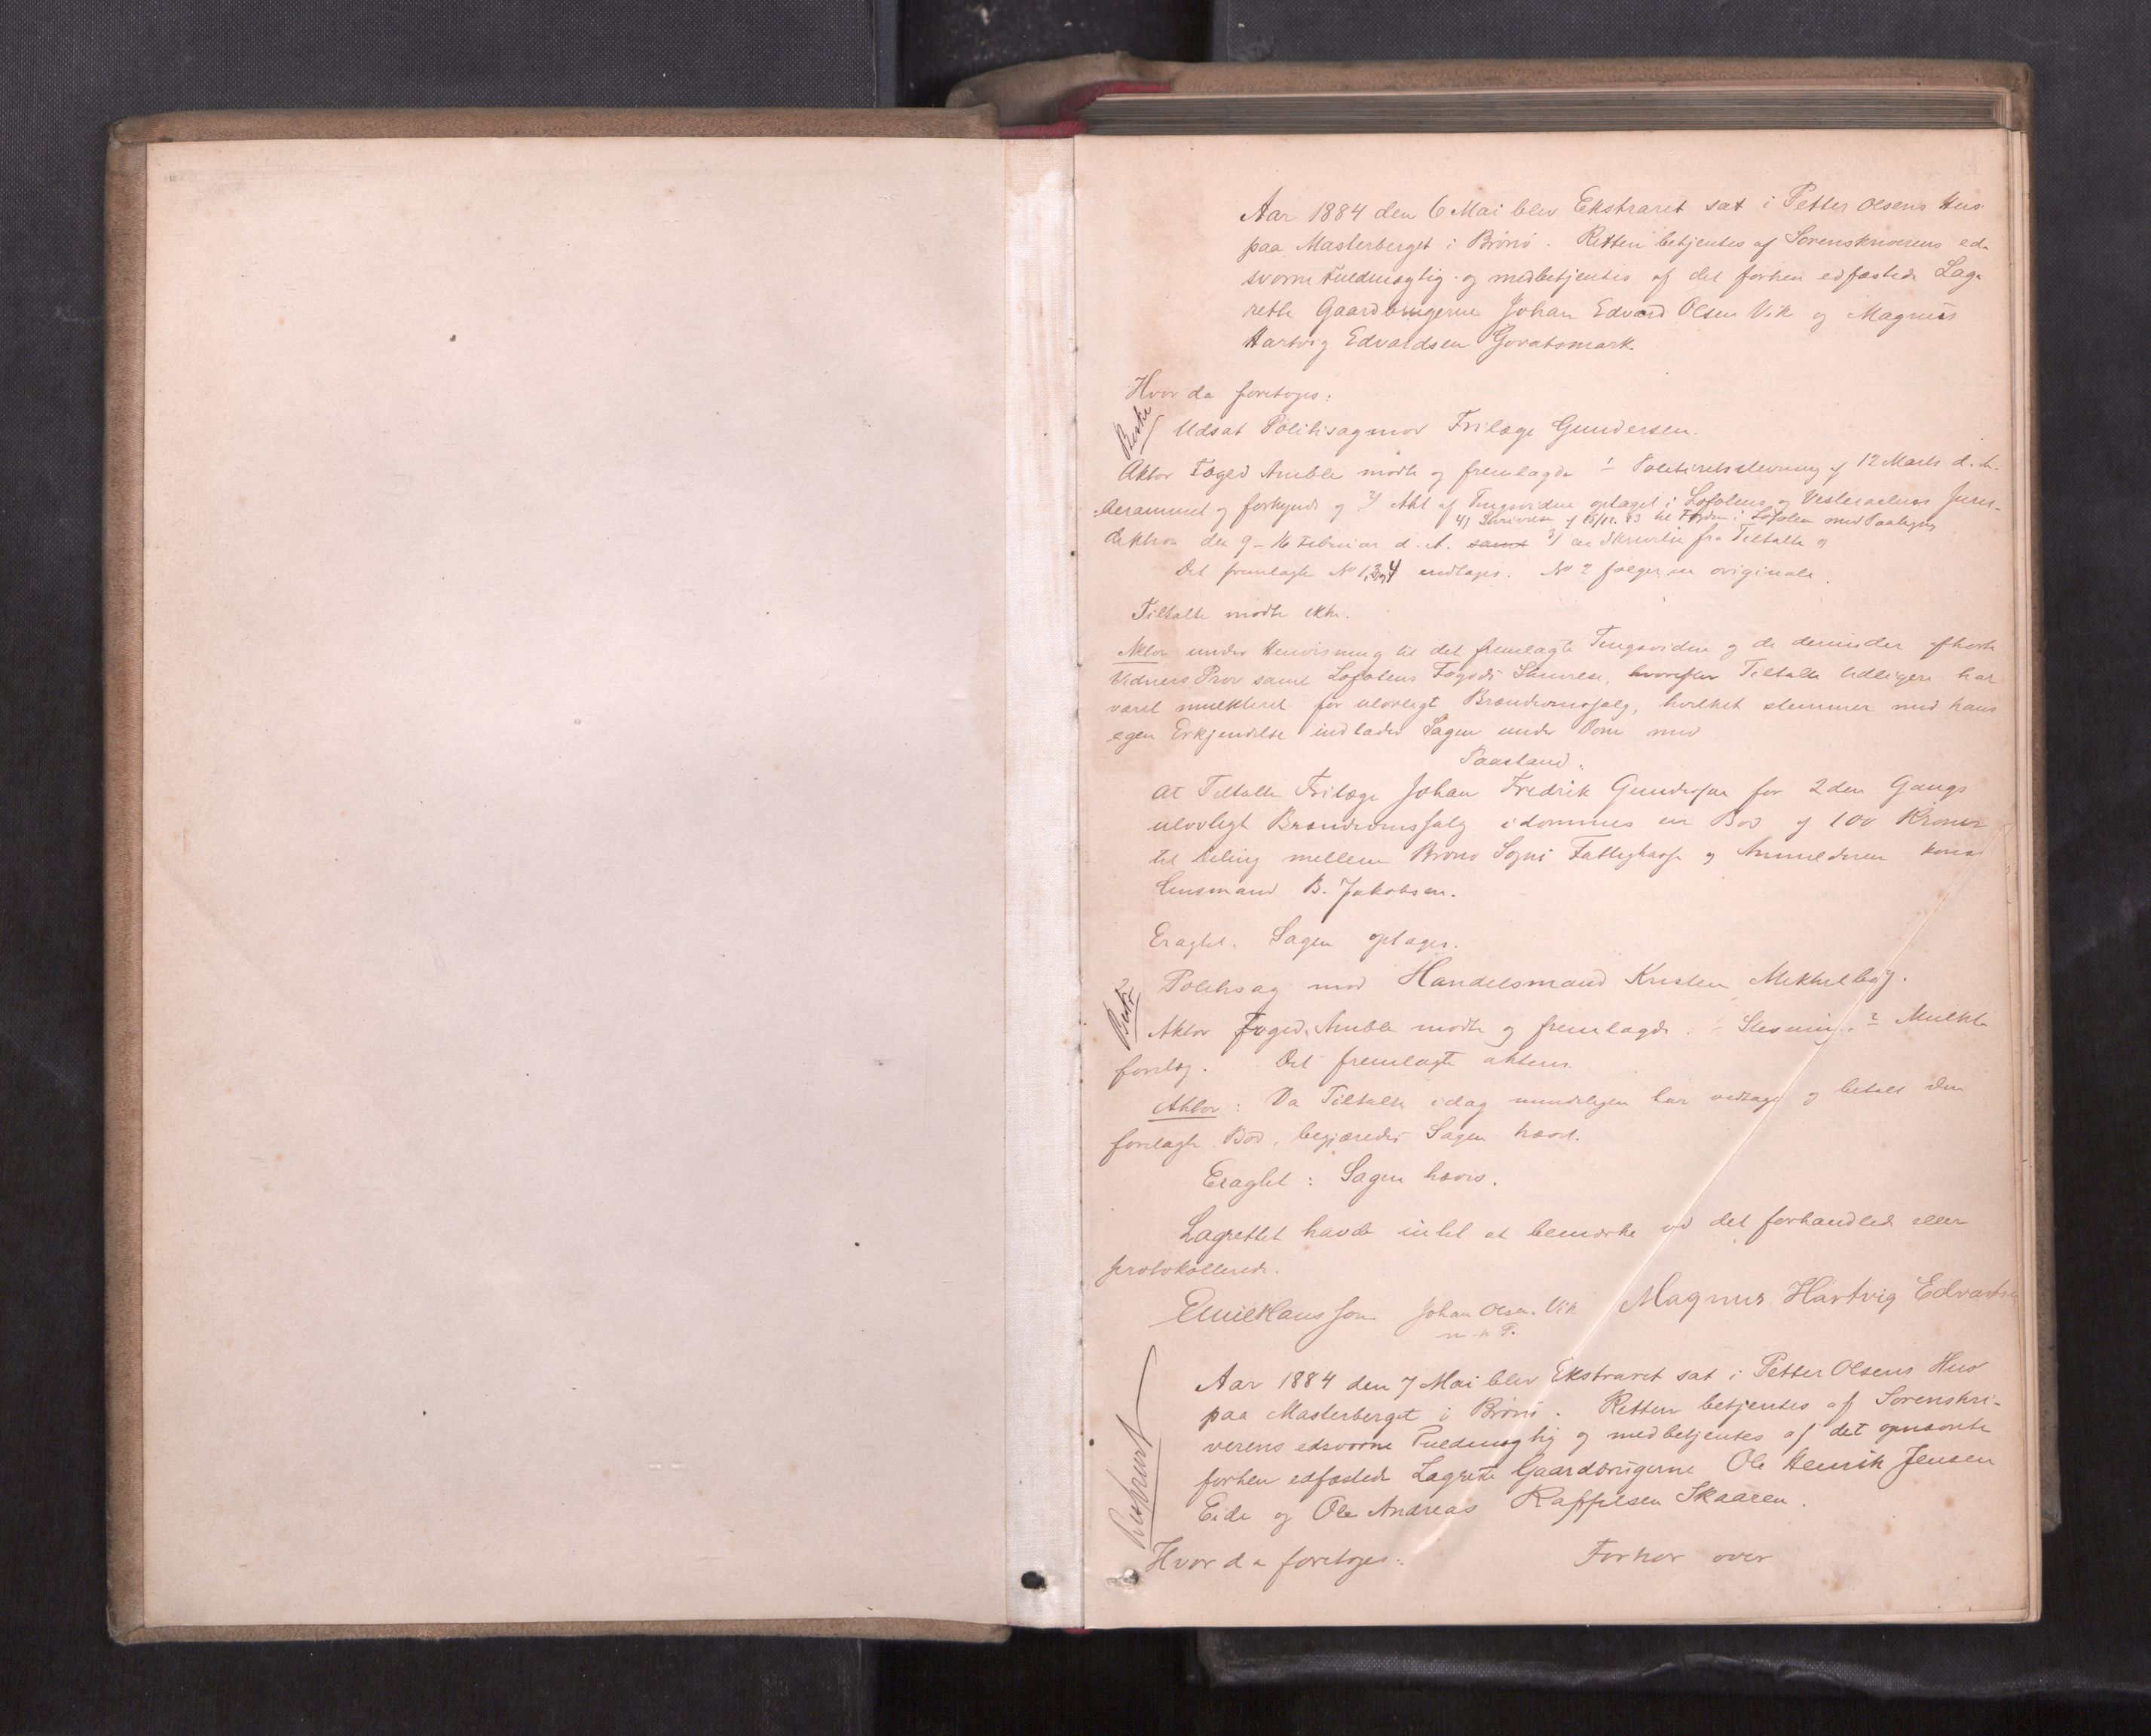 Aar 1884 den 6 Mai blev Ekstraret sat i Petter Olsens Hus
paa Masterberget i Brønø. Retten betjentes af Sorenskriverens ed-
svorne Fuldmægtig og medbetjentes af det forhen edfæstede Lag-
rette Gaardbrugerne Johan Edvard Olsen Vik og Magnus
Hartvig Edvardsen
Hvor da foretoges:
Udsat Politisag mod Frilæge Gundersen.
Aktor Foged Amble mødte og fremlagde 1 Politiretsstevning af 12 Marts d. A.
berammet og forkyndt og 2) Akt af Tingsvidne optaget i Lofotens og Vesteraalens Juris-
4) Skrivelse af 18/12. 83 til Fogden i Lofoten med Paategng
diktion den 9-16 Februar d. A. samt 3) en Skrivelse fra Tiltalte og
Det fremlagte No 1, 3, 4 indtages. No 2 følger in originale.
Tiltalte mødte ikke.
Aktor under Henvisning til det fremlagte Tingsvidne og de derunder afhørte
Vidners Prov samt Lofotens Fogeds Skrivelse, hvorefter Tiltalte tidligere har
været mulkteret for ulovligt Brændevinssalg, hvilket stemmer med hans
egen Erkjendelse indlader Sagen under Dom med
Paastand:
at Tiltalte Frilæge Johan Fredrik Gundersen for 2den Gangs
ulovligt Brændevinssalg idømmes en Bod af 100 Kroner
til Deling mellem Brønø Sogns Fattigkasse og Anmelderen konst
Lensmand B. Jakobsen.
Eragtet: Sagen optages.
Politisag mod Handelsmand Kristen Mikkelbøg.
Aktor Foged Amble mødte og fremlagde 1 Stevning. 2 Mulkte
forelæg. Det fremlagte akteres.
Aktor: Da Tiltalte idag mundtligen har vedtaget og betalt den
forelagte Bod, begjæredes Sagen hævet.
Eragtet: Sagen hæves.
Lagrettet havde intet at bemærke ved det forhandlede eller
protokollerede.
Emil Hansson Johan Olsen Vik Magnus Hartvig Edvards
m. p. P.
Aar 1884 den 7 Mai blev Ekstraret sat i Petter Olsens Hus
paa Masterberget i Brønø. Retten betjentes af Sorenskri-
verens edsvorne Fuldmægtig og medbetjentes af det opnævnte
forhen edfæstede Lagrette Gaardbrugerne Ole Henrik Jensen
Eide og Ole Andreas Raffelsen Skaaren.
Hvor da foretoges: Forhør over